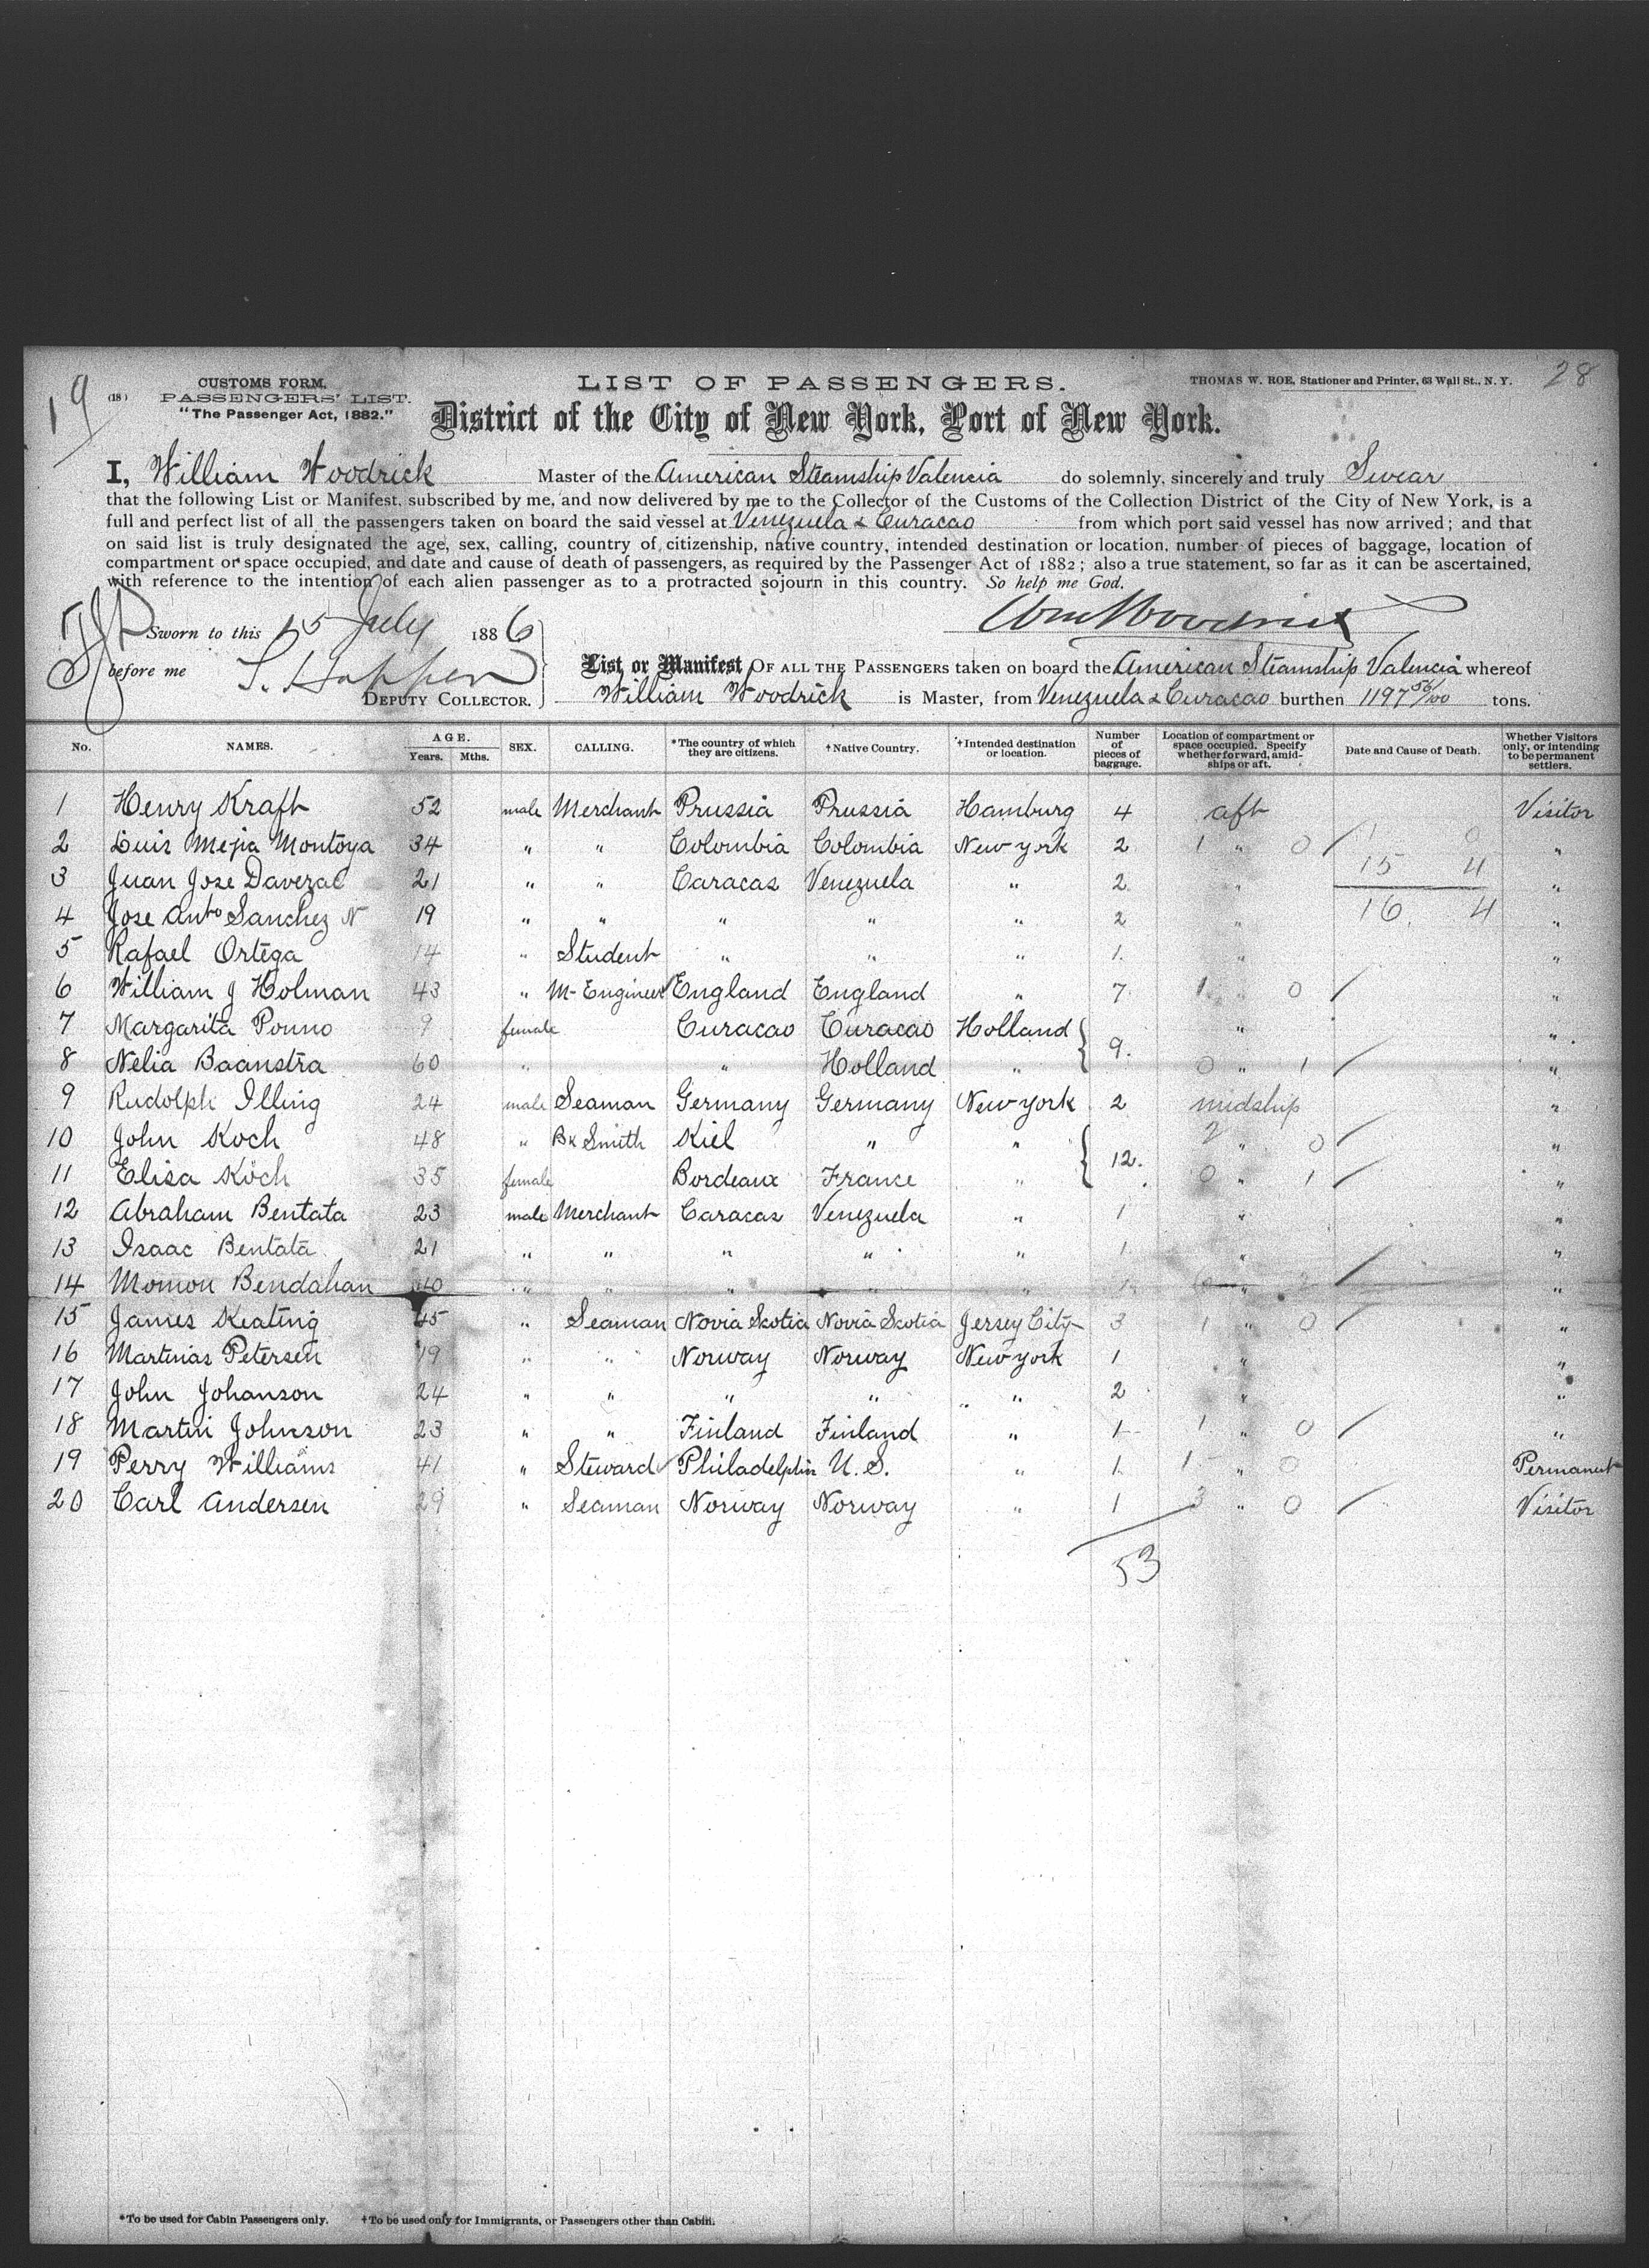 19
28
CUSTOMS FORM.
(18) PASSENGERS' LIST.
"The Passenger Act, 1882."
LIST OF PASSENGERS.
THOMAS W. ROE, Stationer and Printer, 63 Wall St., N. Y.
District of the City of New York, Port of New York.
I, William Woodrick Master of the American Steamship Valencia do solemnly, sincerely and truly Swear
that the following List or Manifest, subscribed by me, and now delivered by me to the Collector of the Customs of the Collection District of the City of New York, is a
full and perfect list of all the passengers taken on board the said vessel at Venezuela & Curacao from which port said vessel has now arrived; and that
on said list is truly designated the age, sex, calling, country of citizenship, native country, intended destination or location, number of pieces of baggage, location of
compartment or space occupied, and date and cause of death of passengers, as required by the Passenger Act of 1882; also a true statement, so far as it can be ascertained,
with reference to the intention of each alien passenger as to a protracted sojourn in this country. So help me God.
Wm Woodrick
Sworn to this 15 July 1886
before me
DEPUTY COLLECTOR.
List or Manifest OF ALL THE PASSENGERS taken on board the American Steamship Valencia whereof
William Woodrick is Master, from Venezuela & Curacao burthen 1197 56/100 tons.
No. NAMES. AGE. Years. Mths. SEX. CALLING. *The country of which they are citizens. †Native Country. †Intended destination or location. Number of pieces of baggage. Location of compartment or space occupied. Specify whether forward, amidships or aft. Date and Cause of Death. Whether Visitors only, or intending to be permanent settlers.
1 Henry Kraft 52 male Merchant Prussia Prussia Hamburg 4 aft Visitor
2 Luis Mejia Montoya 34 " " Colombia Colombia New York 2 1 " 0 / "
3 Juan Jose Davezac 21 " " Caracas Venezuela " 2 " 15 4 "
4 Jose Anto Sanchez N 19 " " " " " 2 " 16 4 "
5 Rafael Ortega 14 " Student " " " 1 " "
6 William J Holman 43 " M-Engineer England England " 7 1 " 0 / "
7 Margarita Ponno 9 female Curacao Curacao Holland " "
8 Nelia Baanstra 60 " " Holland " 9. 0 " 1 / "
9 Rudolph Illing 24 male Seaman Germany Germany New York 2 midship "
10 John Koch 48 " Bk Smith Kiel " " 2 " 0 / "
11 Elisa Koch 35 female Bordeaux France " 12. 0 " 1 / "
12 Abraham Bentata 23 male Merchant Caracas Venezuela " 1 " "
13 Isaac Bentata 21 " " " " " 1 " "
14 Momon Bendahan 40 " " " " " 1 " / "
15 James Keating 45 " Seaman Novia Scotia Novia Scotia Jersey City 3 1 " 0 / "
16 Martinias Petersen 19 " " Norway Norway New York 1 " "
17 John Johanson 24 " " " " " 2 " "
18 Martin Johnson 23 " " Finland Finland " 1 1 " 0 / "
19 Perry Williams 41 " Steward Philadelphia U. S. " 1 1 " 0 Permanent
20 Carl Andersen 29 " Seaman Norway Norway " 1 3 " 0 / Visitor
53
*To be used for Cabin Passengers only. †To be used only for Immigrants, or Passengers other than Cabin.